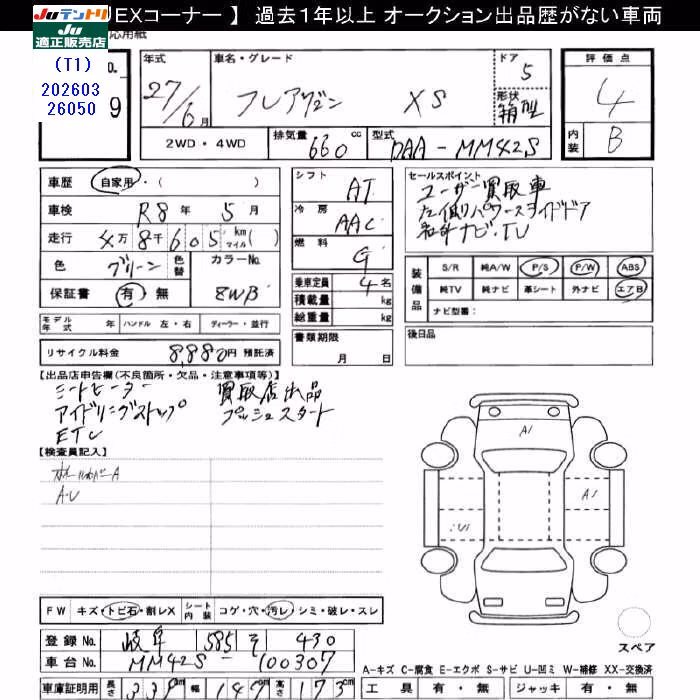 JUテントリ
JU
適正販売店
(T1)
202603
26050
EXコーナー 】 過去1年以上 オークション出品歴がない車両
応用紙
No.
9
年式 車名・グレード ドア 評価点
27/6月 フレアワゴン XS 5 4
形状 箱型
2WD・4WD 排気量 660 cc 型式 DAA-MM42S 内装 B
車歴 自家用・( )
車検 R8年 5月
走行 4万8千605 km マイル( )
色 グリーン 色替 カラーNo.
保証書 有・無 8WB
シフト AT
冷房 AAC
燃料 G
乗車定員 4名
積載量 kg
総重量 kg
書類期限
月 日
セールスポイント
ユーザー買取車
左側パワースライドドア
社外ナビ・TV
装備品 S/R 純A/W P/S P/W ABS
純TV 純ナビ 革シート 外ナビ エアB
ナビ型番:
後日品
モデル年式 年 ハンドル 左・右 ディーラー・並行
リサイクル料金 8,880円 預託済
【出品店申告欄(不良箇所・欠品・注意事項等)】
シートヒーター 買取店出品
アイドリングストップ プッシュスタート
ETC
【検査員記入】
A・U
A1
A1
FW キズ・トビ石・割レX シート内装 コゲ・穴・汚レ・シミ・破レ・スレ
スペア
登録No. 岐阜 585 そ 430
車台No. MM42S-100307
A-キズ C-腐食 E-エクボ S-サビ U-凹ミ W-補修 XX-交換済
車庫証明用 長さ 339cm 幅 147cm 高さ 173cm
工具 有・無 ジャッキ 有・無